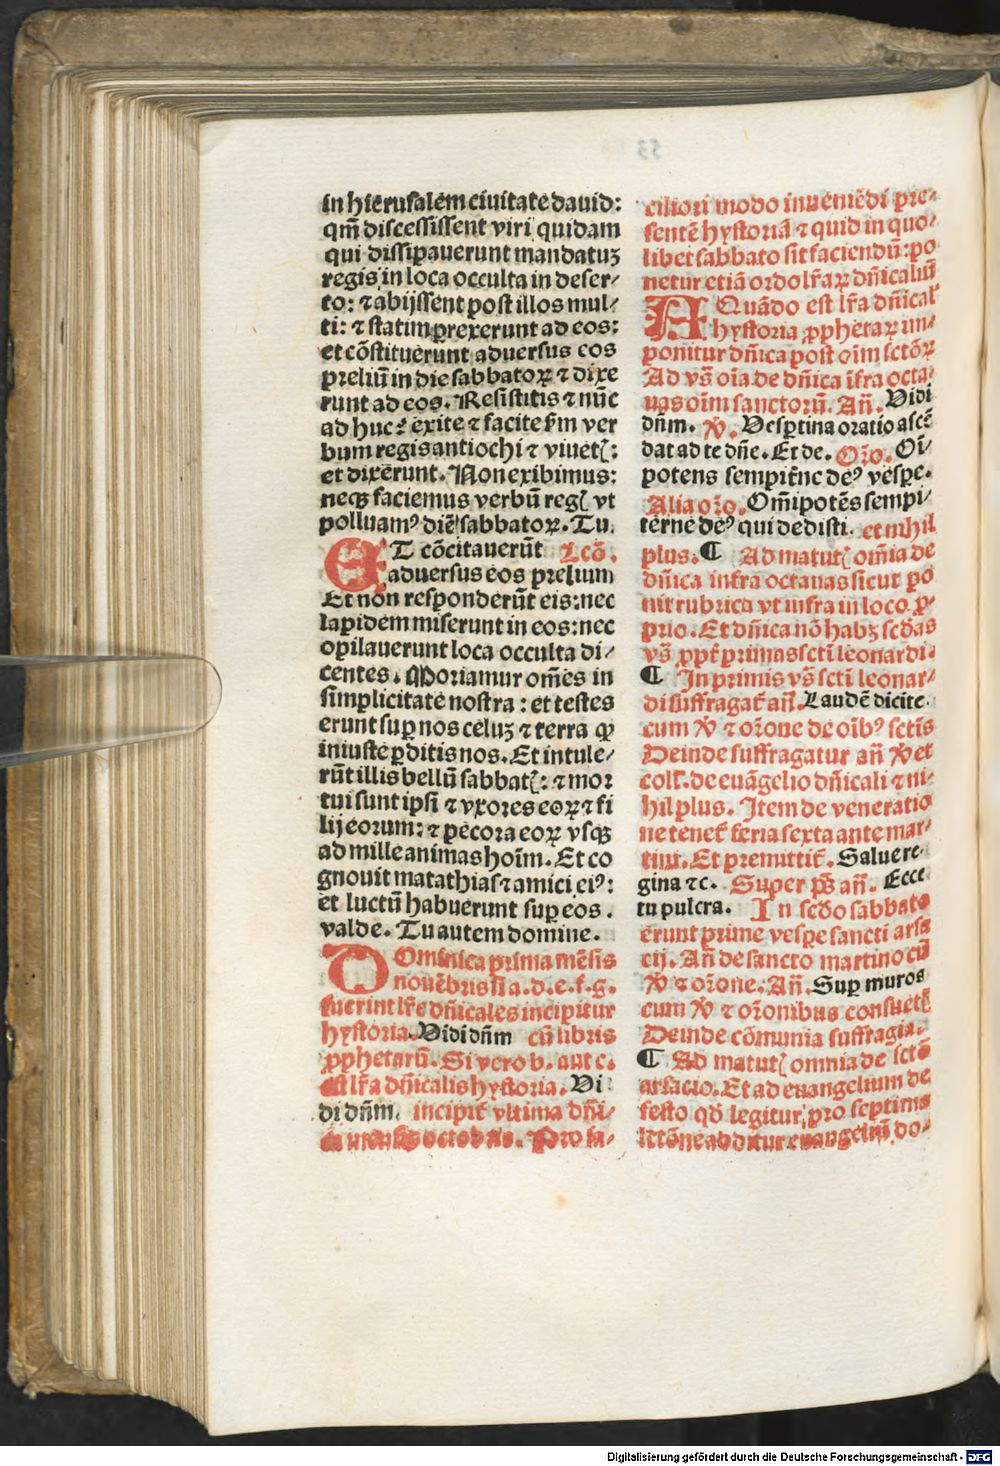 in hierusalem ciuitate dauid:
qm̄ discessissent viri quidam
qui dissipauerunt mandatuꝫ
regis in loca occulta in deser⸗
to: ⁊ abijssent post illos mul⸗
ti: ⁊ statim ꝑrexerunt ad eos:
et cōstituerunt aduersus eos
preliū in die sabbatoꝝ ⁊ dixe
runt ad eos. Resistitis ⁊ nūc
ad huc? exite ⁊ facite ẜm ver
bum regis antiochi ⁊ viuetꝭ:
et dixerunt. Non exibimus:
neqꝫ faciemus verbū regꝭ vt
polluamꝰ diē sabbatoꝝ. Tu.
ET cōcitauerūt Lcō.
aduersus eos prelium
Et non responderūt eis: nec
lapidem miserunt in eos: nec
opilauerunt loca occulta di⸗
centes. Moriamur om̄es in
simplicitate nostra: et testes
erunt suꝑ nos celuꝫ ⁊ terra ꝙ
iniuste ꝑditis nos. Et intule⸗
rūt illis bellū sabbatꝭ: ⁊ mor
tui sunt ipsi ⁊ vxores eoꝝ ⁊ fi
lij eorum: ⁊ pecora eoꝝ vsqꝫ
ad mille animas hoīm. Et co
gnouit matathias ⁊ amici eiꝰ:
et luctū habuerunt suꝑ eos.
valde. Tu autem domine.
DOminica prima mēsis
nouēbris si a. d. e. f. g.
fuerint lr̄e dn̄icales incipitur
hystoria. Vidi dn̄m cū libris
ꝓphetarū. Si vero b. aut c.
est lr̄a dn̄icalis hystoria. Vi
di dn̄m. incipit̄ vltima dn̄i⸗
ca mensis octobris. Pro fa⸗
ciliori modo inueniēdi pre⸗
sentē hystoriā ⁊ quid in quo⸗
libet sabbato sit faciendū: po
netur etiā ordo lr̄aꝝ dn̄icaliū
A Quādo est lr̄a dn̄ical̄
hystoria ꝓphetaꝝ im⸗
ponitur dn̄ica post oīm sctōꝝ
Ad vs̄ oīa de dn̄ica īfra octa⸗
uas oīm sanctorū. An̄. Vidi
dn̄m. V̄. Vesꝑtina oratio ascē
dat ad te dn̄e. Et de. Or̄o. Oī⸗
potens sempit̄ne deꝰ vespe.
Alia or̄o. Om̄ipotēs sempi⸗
terne deꝰ qui dedisti. et nihil
plus. ¶ Ad matutꝭ om̄ia de
dn̄ica infra octauas sicut po
nit rubrica vt infra in loco ꝓ⸗
prio. Et dn̄ica nō habꝫ scd̄as
vs̄ ꝓpt̄ primas sctī leonardi.
¶ In primis vs̄ sctī leonar⸗
di suffragat̄ an̄. Laudē dicite.
cum V̄ ⁊ or̄one de oībꝰ sctīs
Deinde suffragatur an̄ V̄ et
coll̄. de euāgelio dn̄icali ⁊ ni⸗
hil plus. Item de veneratio
ne tenet̄ feria sexta ante mar⸗
tini. Et premittit̄. Salue re⸗
gina ⁊c. Super ps̄ an̄. Ecce
tu pulcra. In scd̄o sabbato
erunt prime vespe sancti arsa
cij. An̄ de sancto martino cū
V̄ ⁊ or̄one. An̄. Suꝑ muros
cum V̄ ⁊ or̄onibus consuet̄
Deinde cōmunia suffragia.
¶ Ad matutꝭ omnia de sctō
arsacio. Et ad euangelium de
festo qd̄ legitur, pro septima
lectōne additur euangeliū do⸗
Digitalisierung gefördert durch die Deutsche Forschungsgemeinschaft - DFG